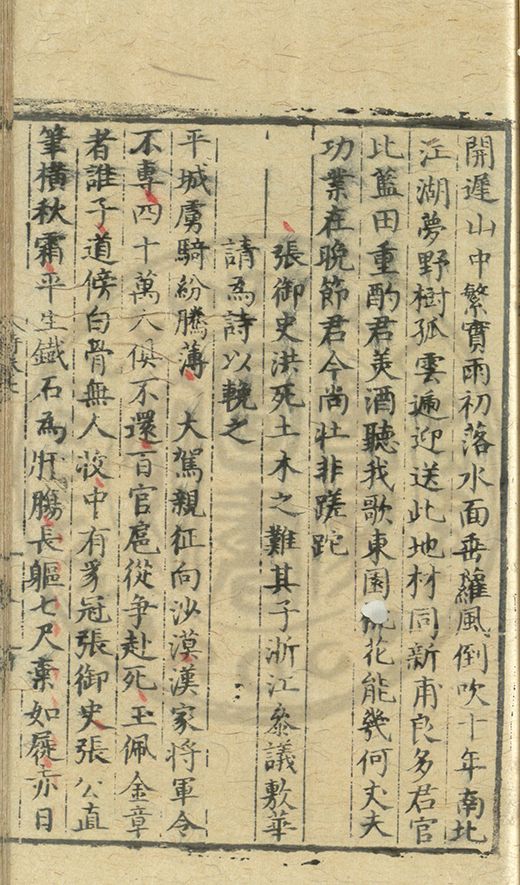 開遲山中繁實雨初落水面垂蘿風倒吹十年南北
江湖夢野樹孤雲遍迎送此地材同新甫良多君官
比藍田重酌君美酒聽我歌東園桃花能幾何丈夫
功業在晚節君今尚壯非蹉跎
張御史洪死土木之難其子浙江叅議敷華
請為詩以輓之
平城虜騎紛騰薄大駕親征向沙漠漢家將軍令
不專四十萬人俱不還百官扈從争赴死玉佩金章
者誰子道傍白骨無人收中有豸冠張御史張公直
筆橫秋霜平生鐵石為肝腸長軀七尺棄如屣赤日